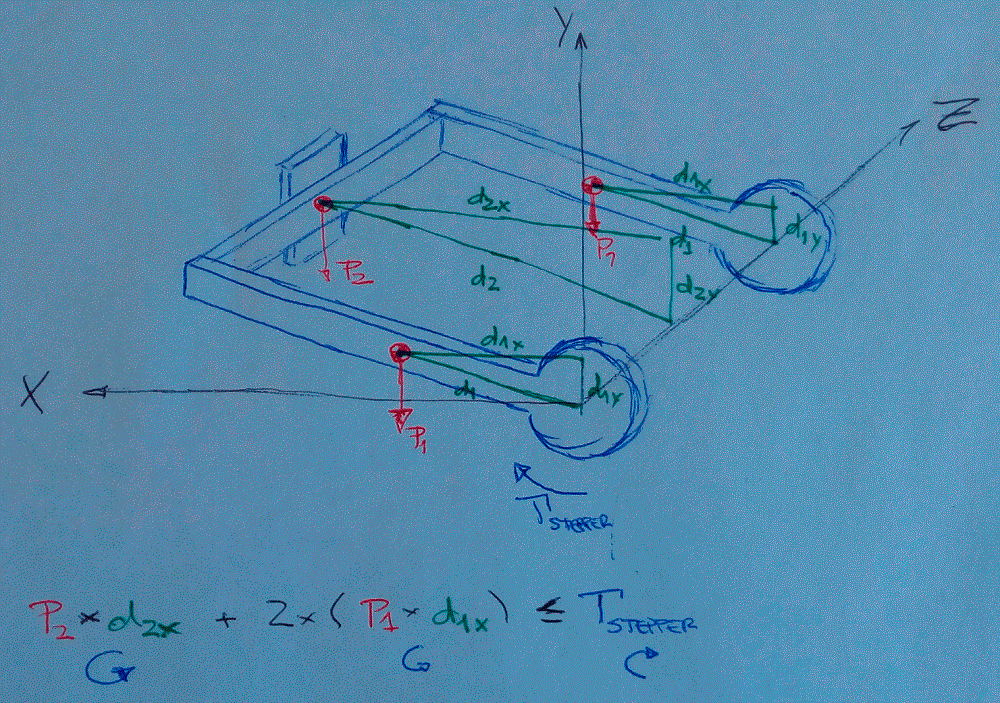 Y
Z
d1x
d2x
d1y
P1
d1
P2
d2
d2y
d1x
X
d1
d1y
P1
TSTEPPER
P2 × d2x + 2×(P1 × d1x) ≤ TSTEPPER